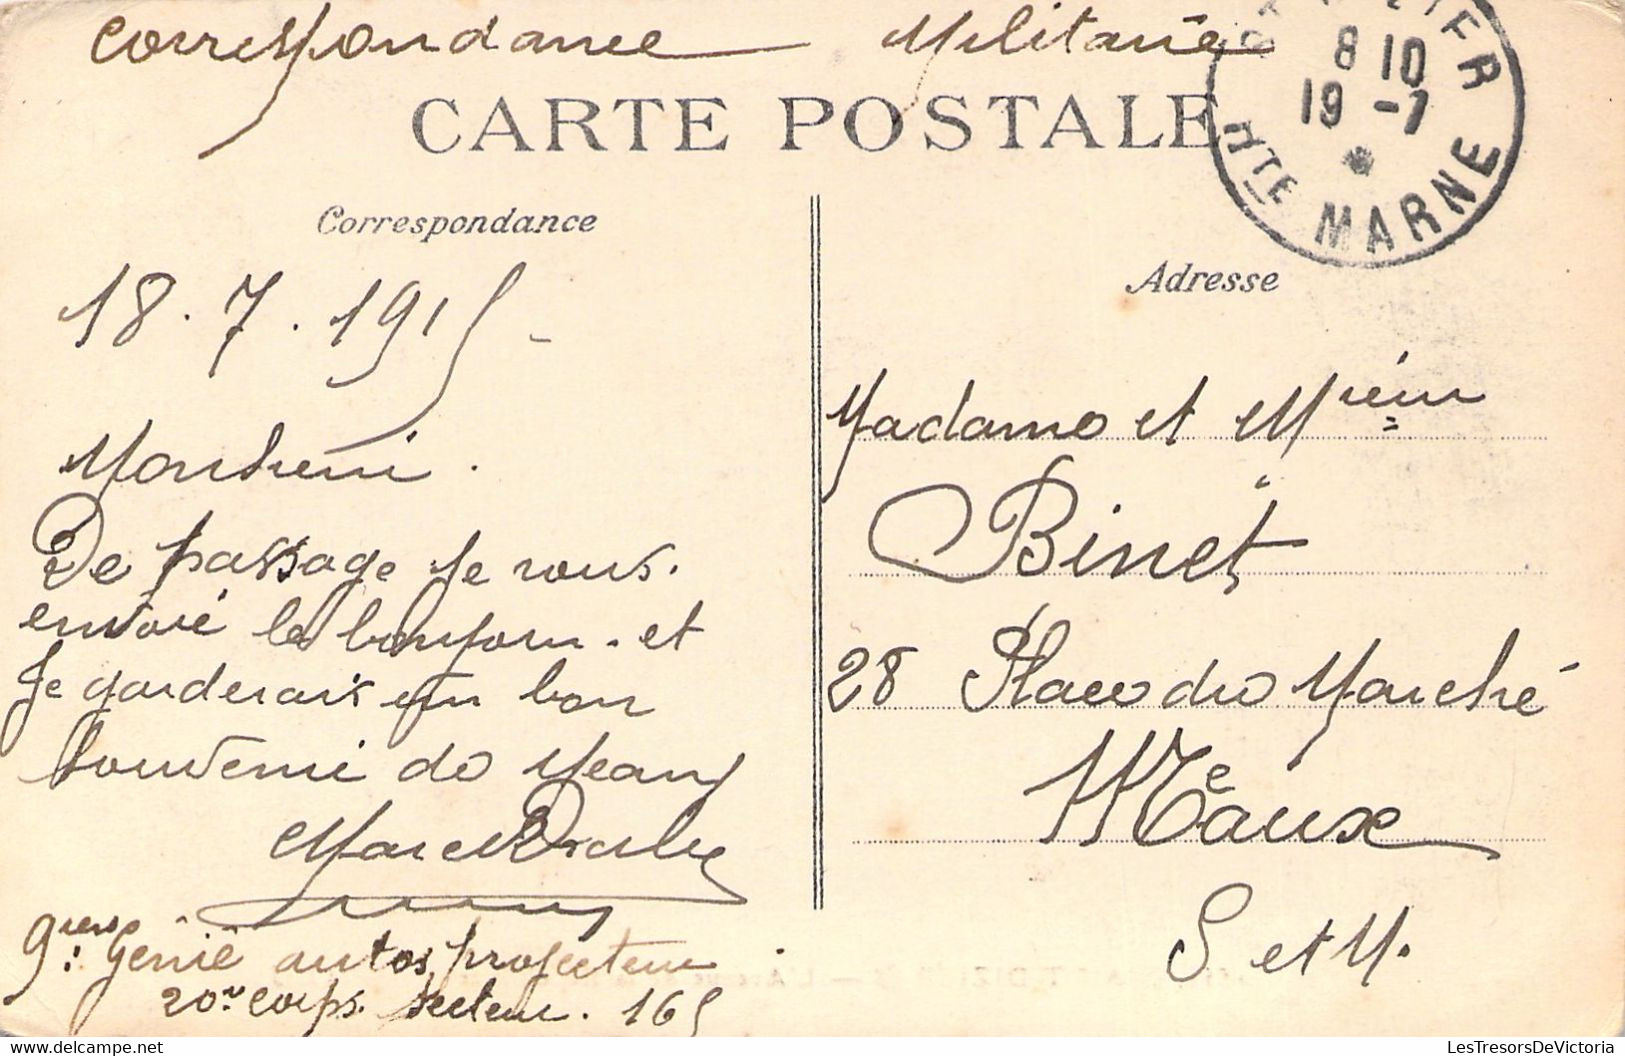 Correspondance Militaire
CARTE POSTALE
8 10
19 -7
HTE MARNE
Correspondance
Adresse
18.7.1915 -
De passage Je vous.
envoie le bonjour. et
Je garderais un bon
Souvenir de Meaux
Madame et
Binet
28 Place du Marché
Meaux
S et M.
Génie autos projecteur
20e corps. secteur. 165
LesTresorsDeVictoria